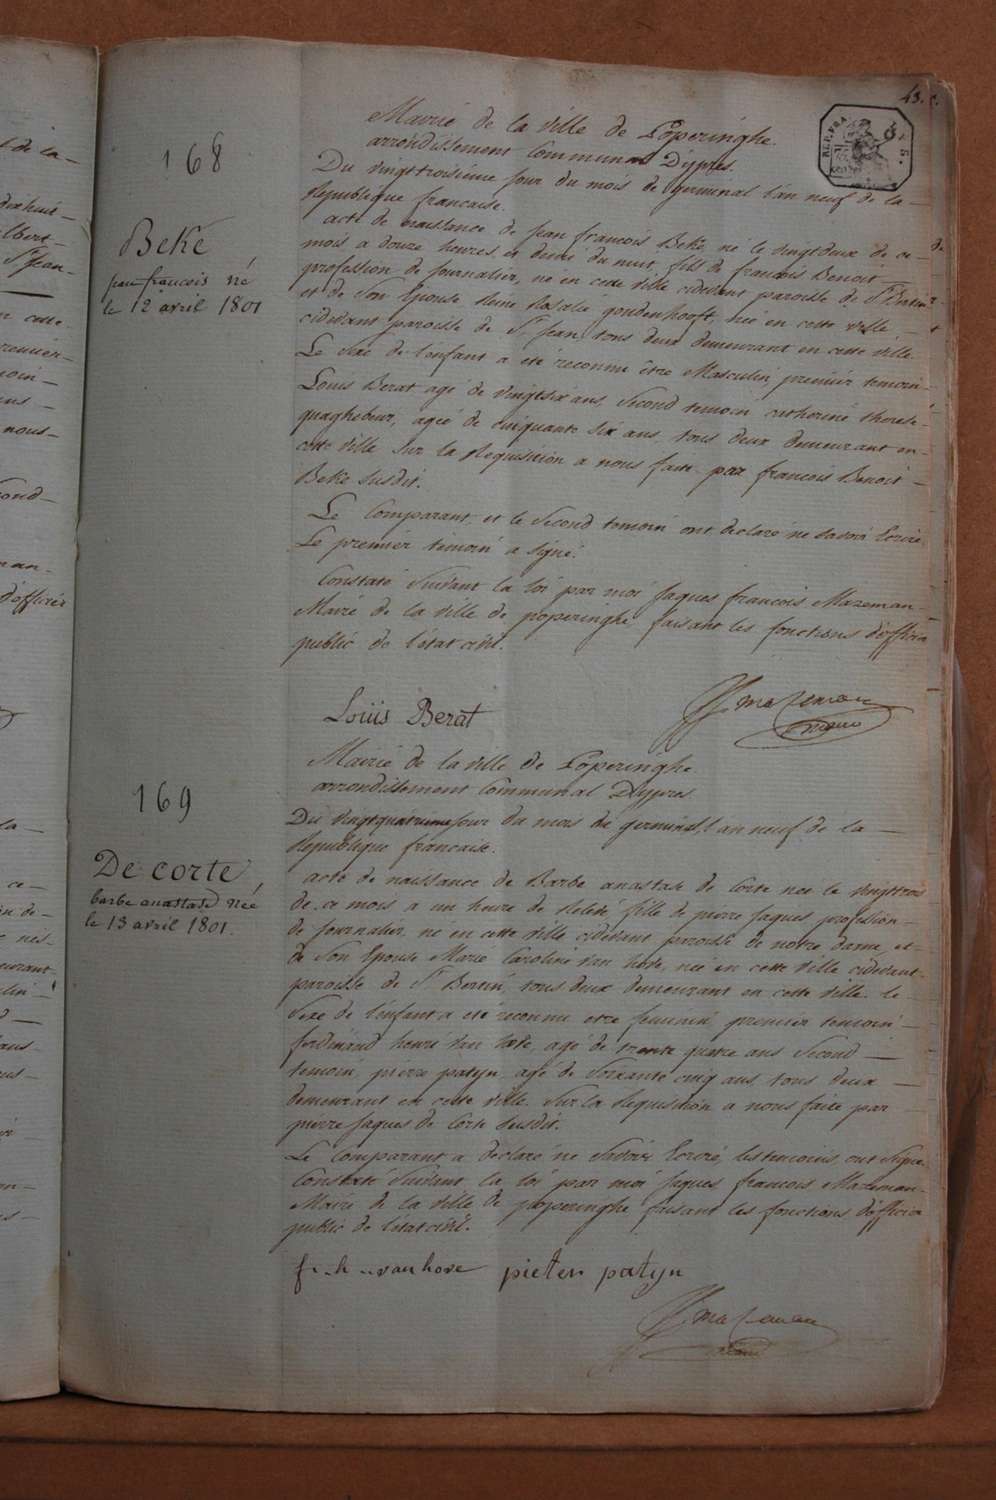 43.
REP. FRA.
168
Beke
jean françois né
le 12 avril 1801
Mairié de la ville de Poperinghe.
arrondissement Communal D'ypres.
Du vingttroisieme jour du mois de germinal l'an neuf de la —
Republique francaise.
acte de naissance de jean françois Beke, né le vingtdeux de ce
mois a douze heures et demi du nuit, fils de francois Benoit
profession de journalier, né en cette ville cidevant paroisse de St Bertin
et de son Epouse Reine Rosalie goudenhooft, née en cette ville —
cidevant paroisse de St Jean, tous deux demeurant en cette ville.
Le sexe de l'enfant a eté reconnu être Masculin, premier temoin
Louis Berat agé de vingtsix ans, Second temoin catherine therese
quaghebeur, agée de cinquante six ans, tous deux demeurant en
cette ville sur la Requisition a nous faite par francois Benoit —
Beke susdit.
Le Comparant et le Second temoin ont declaré ne savoir Ecrire
Le premier temoin a signé.
Constaté Suivant la loi par moi Jaques francois Mazeman
Mairé de la ville de poperinghe faisant les fonctions d'officier
public de l'état civil.
Loüis Berat
JJ mazeman
maire
169
De corte
barbe anastase née
le 13 avril 1801.
Mairié de la ville de Poperinghe
arrondissement Communal D'ypres.
Du vingtquatrieme jour du mois de germinal, l'an neuf de la —
Republique francaise.
acte de naissance de Barbe anastase de Corte née le vingttrois
de ce mois a un heure de Relevé, fille de pierre Jaques, profession
de journalier, né en cette ville cidevant paroisse de notre dame, et
de Son Epouse Marie Caroline van hove, née en cette ville cidevant
paroisse de St Bertin, tous deux demeurant en cette ville. le
Sexe de l'enfant a eté reconnu etre feminin, premier temoin
ferdinand henri van hove, agé de trente quatre ans Second —
temoin, pierre patyn agé de Soixante cinq ans, tous deux —
demeurant en cette ville. Sur la Requisition a nous faite par
pierre Jaques de Corte susdit.
Le Comparant a declaré ne Savoir Ecrire, les temoins ont Signé
Constaté Suivant la loi par moi Jaques francois Mazeman
Maire de la ville de poperinghe faisant les fonctions d'officier
public de l'état civil.
f. h. vanhove pieter patyn
JJ mazeman
maire